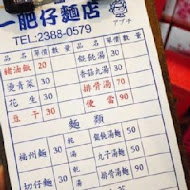 一肥仔麵店
TEL:2388-0579
品名 單價 數量 品名 單價 數量
豬油飯 20 餛飩湯 30
燙青菜 30 香菇湯 30
花生 30 排骨湯 70
豆干 30 便當 90
麵類
福州麵 30 餛飩湯麵 50
丸子湯麵 50
切仔麵 30 排骨湯麵 90